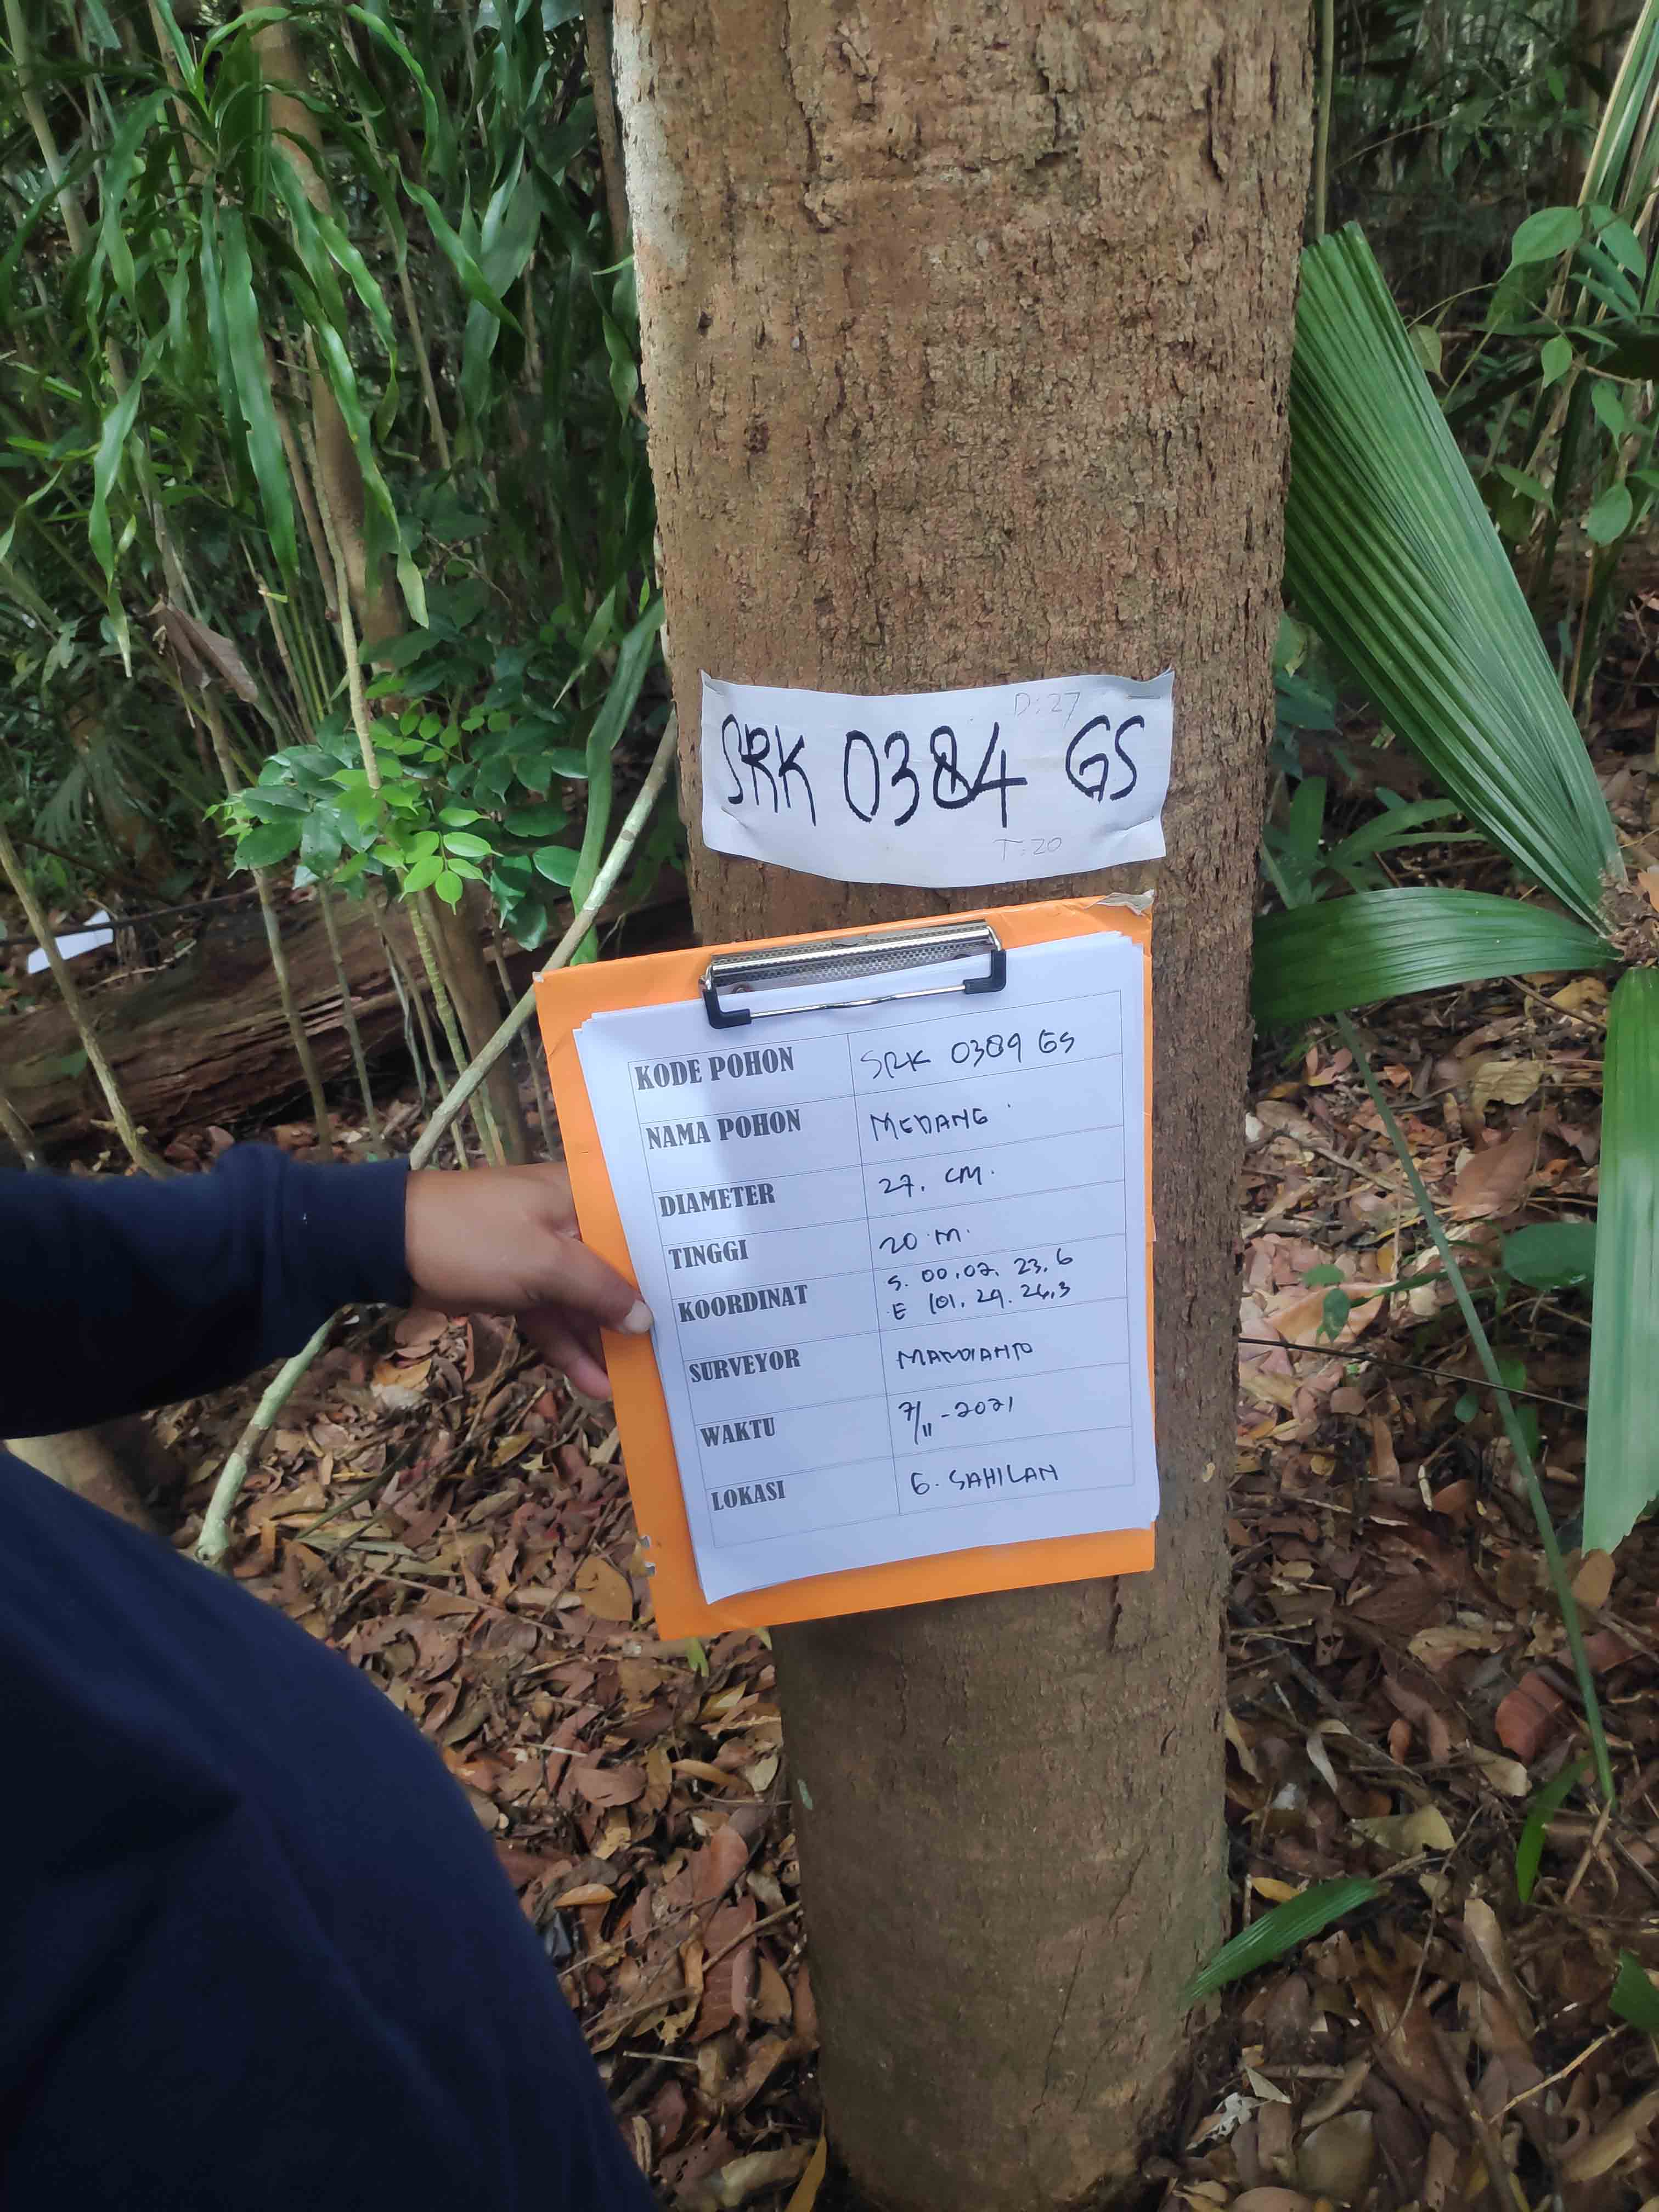 D:27
SRK 0384 GS
T:20
KODE POHON SRK 0384 GS
NAMA POHON MEDANG
DIAMETER 27. CM.
TINGGI 20 m.
KOORDINAT S. 00.02. 23.6
E 101. 29. 26,3
SURVEYOR MARDIANTO
WAKTU 7/11-2021
LOKASI G. SAHILAN